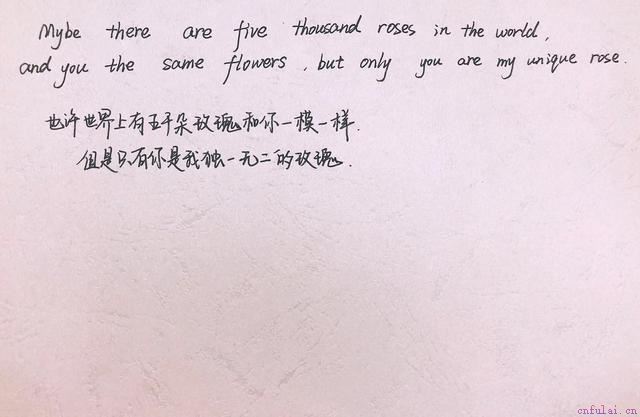 Mybe there are five thousand roses in the world,
and you the same flowers, but only you are my unique rose.
也许世界上有五千朵玫瑰和你一模一样.
但是只有你是我独一无二的玫瑰.
cnfulai.cn